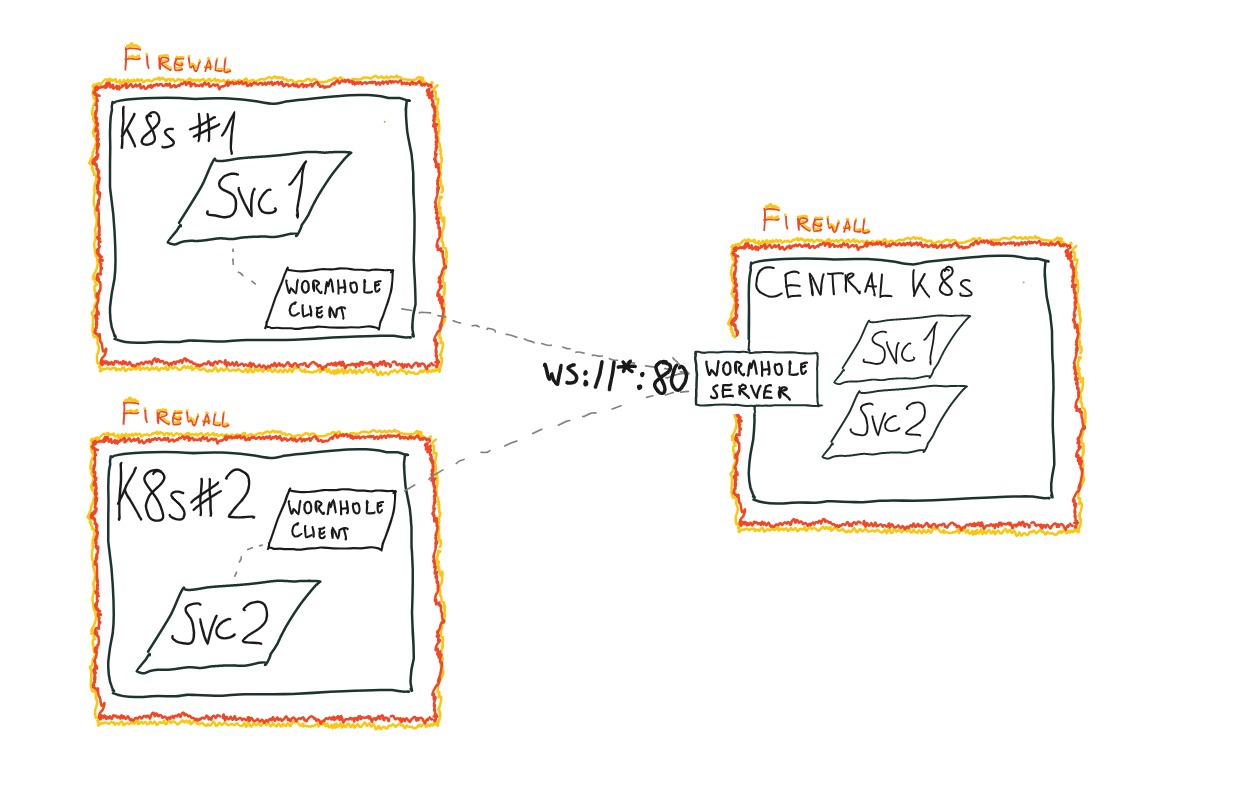 FIREWALL
K8s #1
Svc1
WORMHOLE
CLIENT
FIREWALL
K8s#2
WORMHOLE
CLIENT
Svc2
ws://*:80
FIREWALL
CENTRAL K8s
Svc1
WORMHOLE
SERVER
Svc2